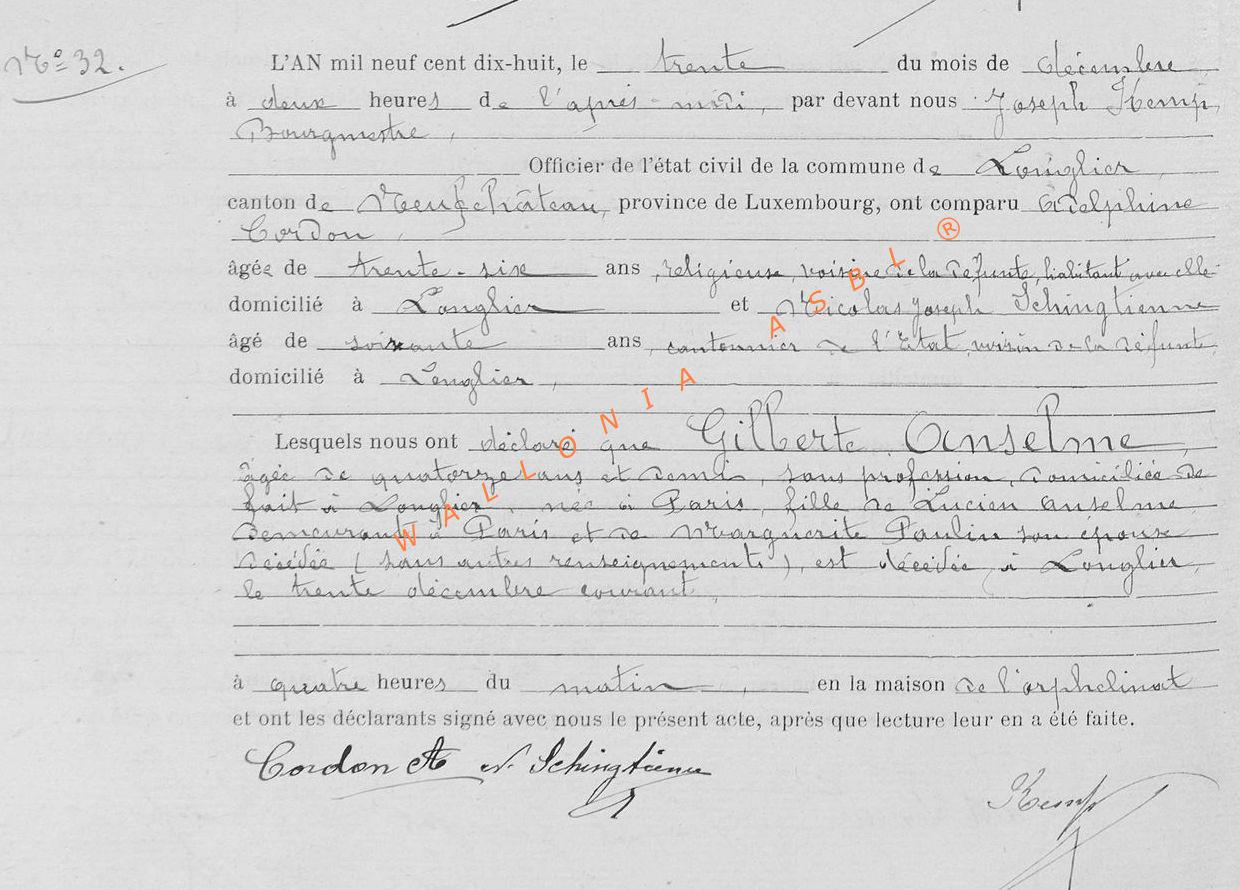 N° 32.
L'AN mil neuf cent dix-huit, le trente du mois de décembre
à deux heures de l'après-midi, par devant nous Joseph Kemp,
Bourgmestre,
Officier de l'état civil de la commune de Longlier,
canton de Neufchâteau, province de Luxembourg, ont comparu Adelphine
Cordon,
âgée de trente-six ans, religieuse, voisine de la défunte, habitant avec elle
domicilié à Longlier et Nicolas Joseph Schingtienne
âgé de soixante ans, cantonnier de l'Etat, voisin de la défunte
domicilié à Longlier,
Lesquels nous ont déclaré que Gilberte Anselme,
âgée de quatorze ans et demi, sans profession, domiciliée de
fait à Longlier, née à Paris, fille de Lucien Anselme,
demeurant à Paris et de Marguerite Paulin son épouse
décédée (sans autres renseignements), est décédée à Longlier,
le trente décembre courant,
à quatre heures du matin, en la maison de l'orphelinat
et ont les déclarants signé avec nous le présent acte, après que lecture leur en a été faite.
Cordon A N. Schingtienne
Kemp
WALLONIA ASBL ®